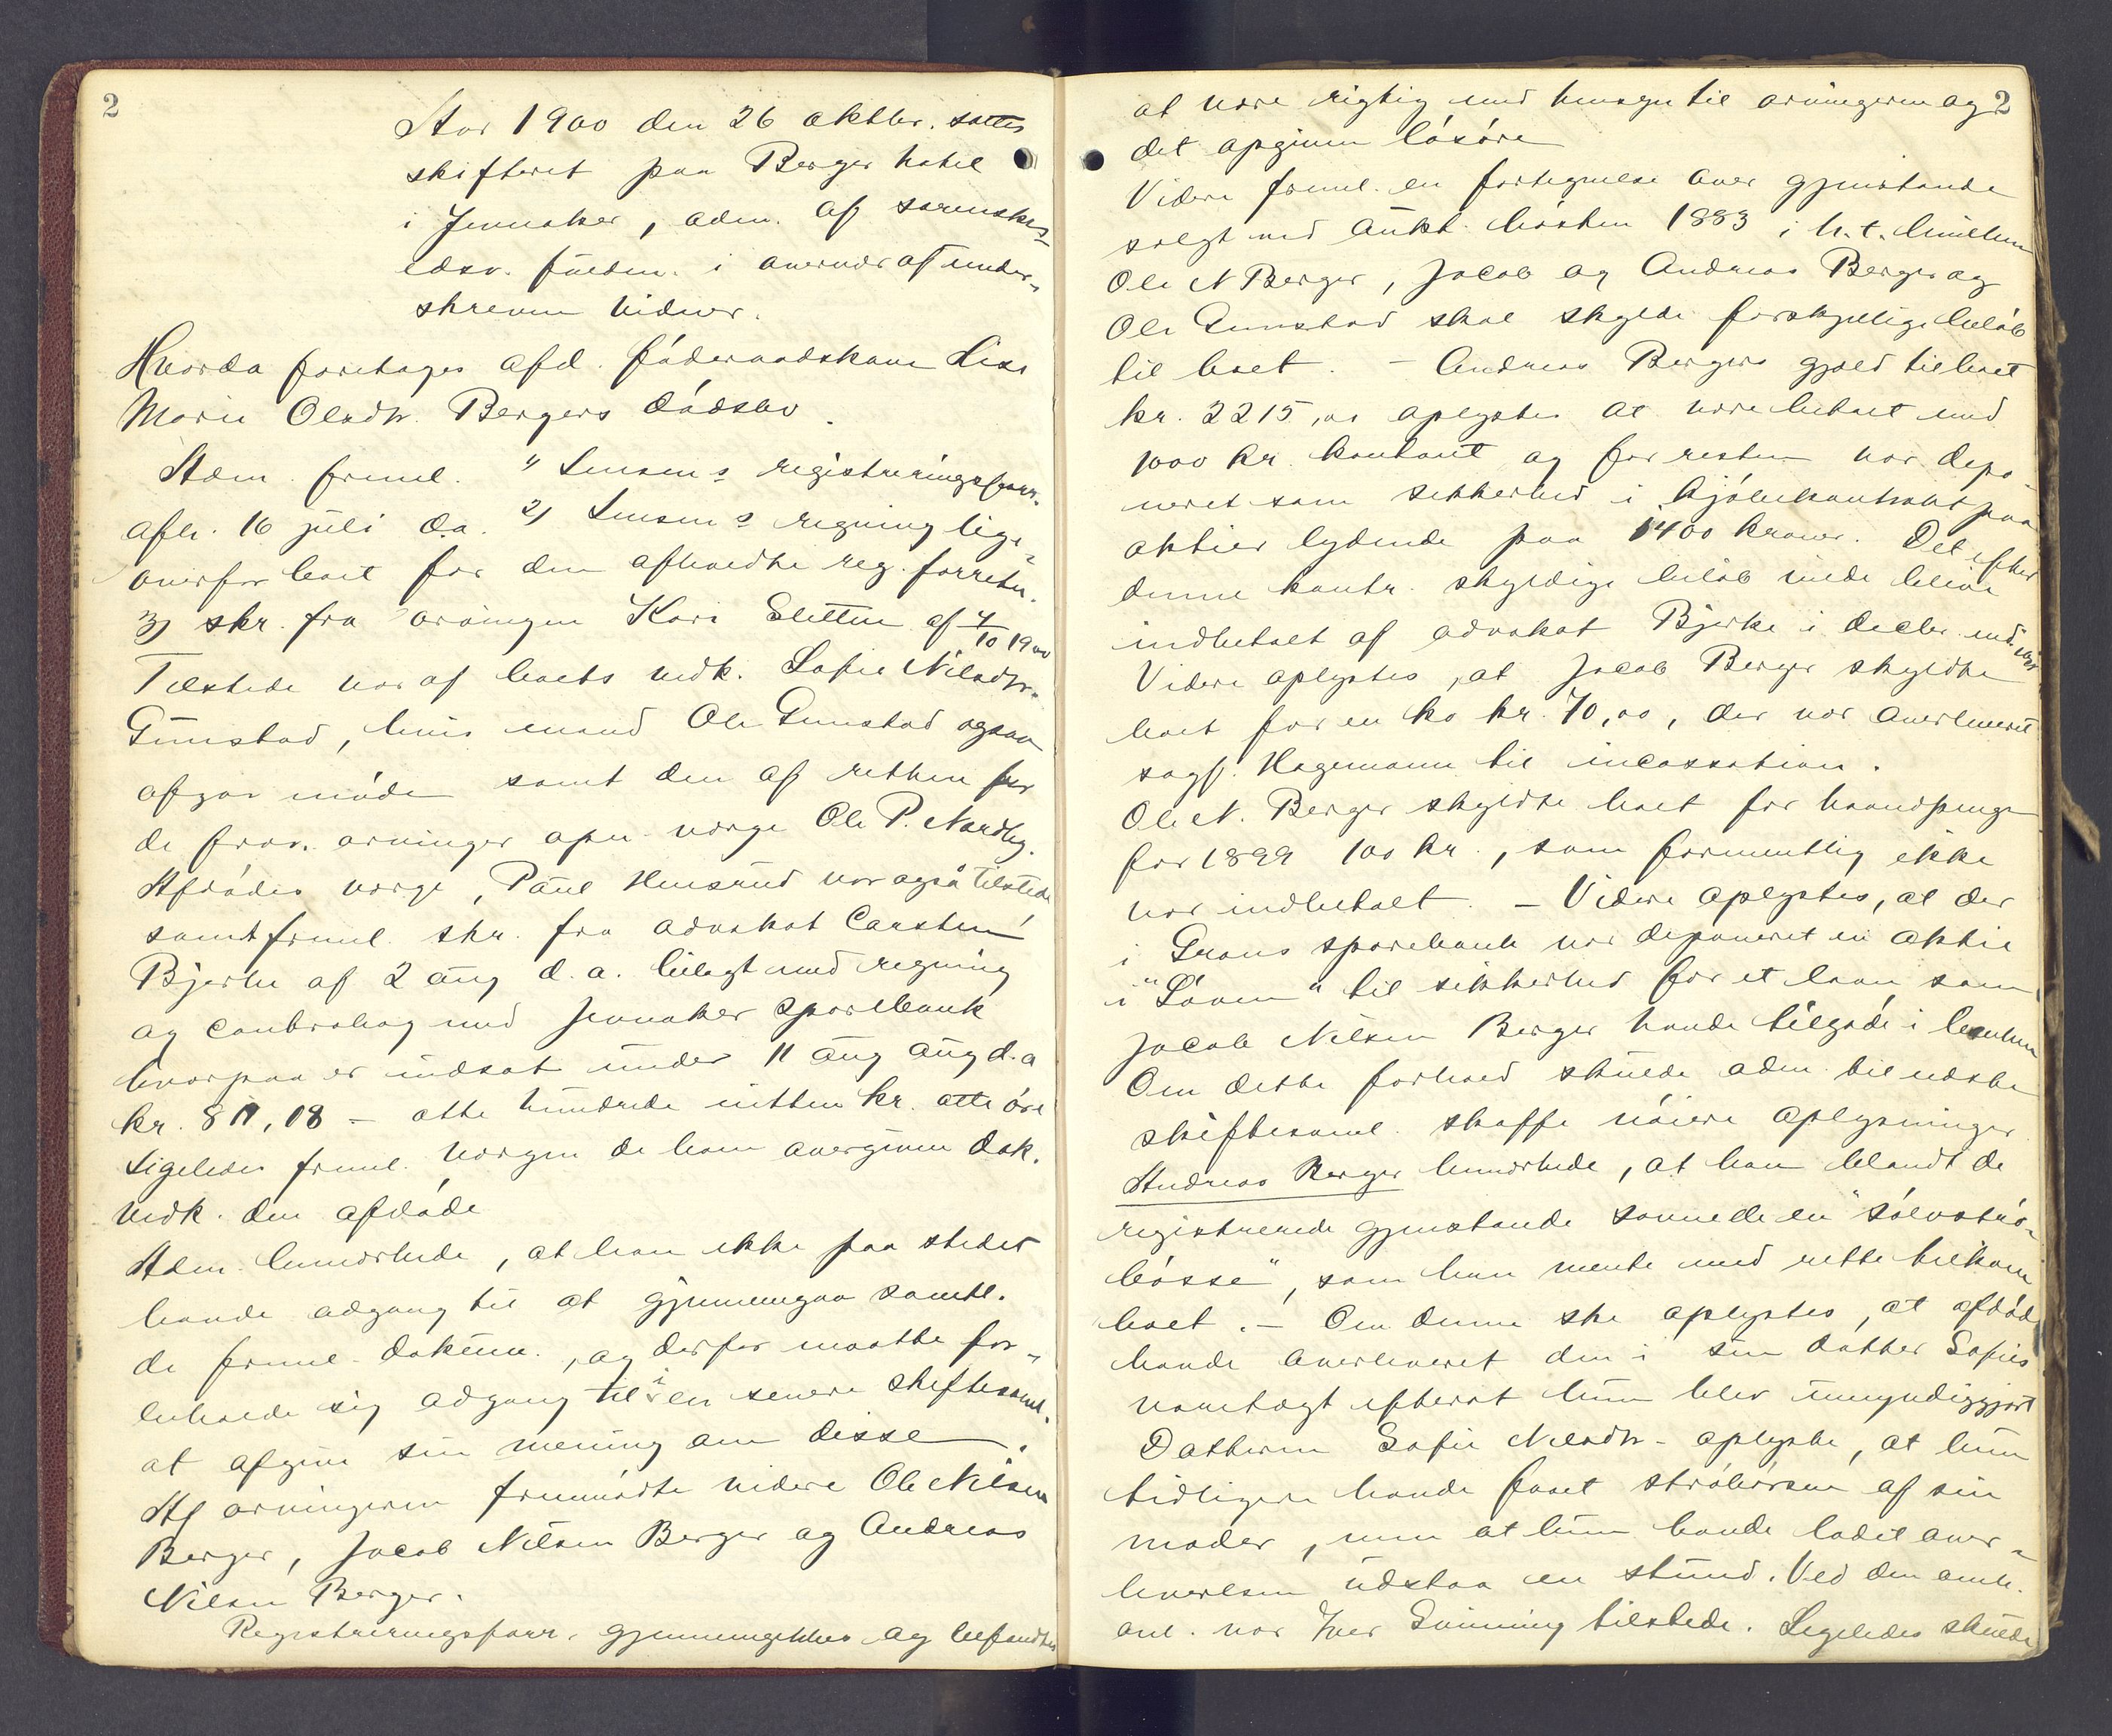 2
Aar 1900 den 26 oktbr. sattes
skifteret paa Berger hotel
i Jevnaker, adm. af sorenskr.-
edsv. fuldm. i overvær af under-
skrevne vidner.
Hvorda foretages afd. föderaadskone Lise
Marie Olsdtr. Bergers dödsbo.
Adm. freml. 1) Lensm.s registreringsforr.
afh. 16 juli d.a. 2) Lensm.s regning lige-
overfor boet for den afholdte reg. forretn.
3) skr. fra arvingen Kari Sletten af 4/10 1900
Tilstede var af boets vedk. Sofie Nilsdtr.
Gunstad, hvis mand Ole Gunstad ogsaa
afgav möde samt den af retten for
de frav. arvinger opn. værge Ole P. Nordby.
Afdödes værge, Paul Hensrud var også tilstede
samt freml. skr. fra advokat Carsten
Bjerke af 2 aug d.a. bilagt med regning
og contrabog med Jevnaker Sparebank
hvorpaa er indsat under 11 aug aug d.a
kr. 819,08 - otte hundrede nitten kr. otte öre
Ligeledes freml. værgen de ham overgivne dok.
vedk. den afdöde
Adm. bemærkede, at han ikke paa stedet
havde adgang til at gjennemgaa samtl.
de freml. dokum., og derfor maatte for-
beholde sig adgang til i en senere skiftesaml.
at afgive sin mening om disse.
Af arvingerne fremmödte videre Ole Nilsen
Berger, Jacob Nilsen Berger og Andreas
Nilsen Berger.
Registreringsforr. gjennemgikkes og befandtes
2
at være rigtig med hensyn til arvingerne og
det opgivne lösöre
Videre freml. en fortegnelse over gjenstande
solgt ved aukt. hösten 1883 i h.t. hvilken
Ole N Berger, Jacob og Andreas Berger og
Ole Gunstad skal skylde forskjellige belöb
til boet. - Andreas Bergers gjæld til boet
kr. 2215,00 oplystes at være betalt med
1000 kr. kontant og for resten var depo-
neret som sikkerhed i kjöbekontrakt paa
aktier lydende paa 1400 kroner. Det efter
denne kontr. skyldige belöb vilde blive
indbetalt af advokat Bjerke i decbr. md. 1900
Videre oplystes, at Jacob Berger skyldte
boet for en ko kr. 70,00, der var overleveret
sagf. Hagemann til incassation.
Ole N. Berger skyldte boet for haandpenge
for 1899 100 kr., som formentlig ikke
var indbetalt. - Videre oplystes, at der
i Grans sparebank var deponeret en aktie
i "Löven" til sikkerhed for et laan som
Jacob Nilsen Berger havde tilgode i banken
Om dette forhold skulde adm. til næste
skiftesaml. skaffe nöiere oplysninger.
Andreas Berger bemærkede, at han blandt de
registrerede gjenstande savnede en "sölvströ-
bösse", som han mente med rette tilkom
boet. - Om denne ske oplystes, at afdöde
havde overleveret den i sin datter Sofies
varetægt efterat hun blev umyndiggjort
Datteren Sofie Nilsdtr. oplyste, at hun
tidligere havde faaet ströbössen af sin
moder, men at hun havde ladet over-
leverelsen udstaa en stund. Ved den omh.
anl. var Iver Svinning tilstede. Ligeledes skulde